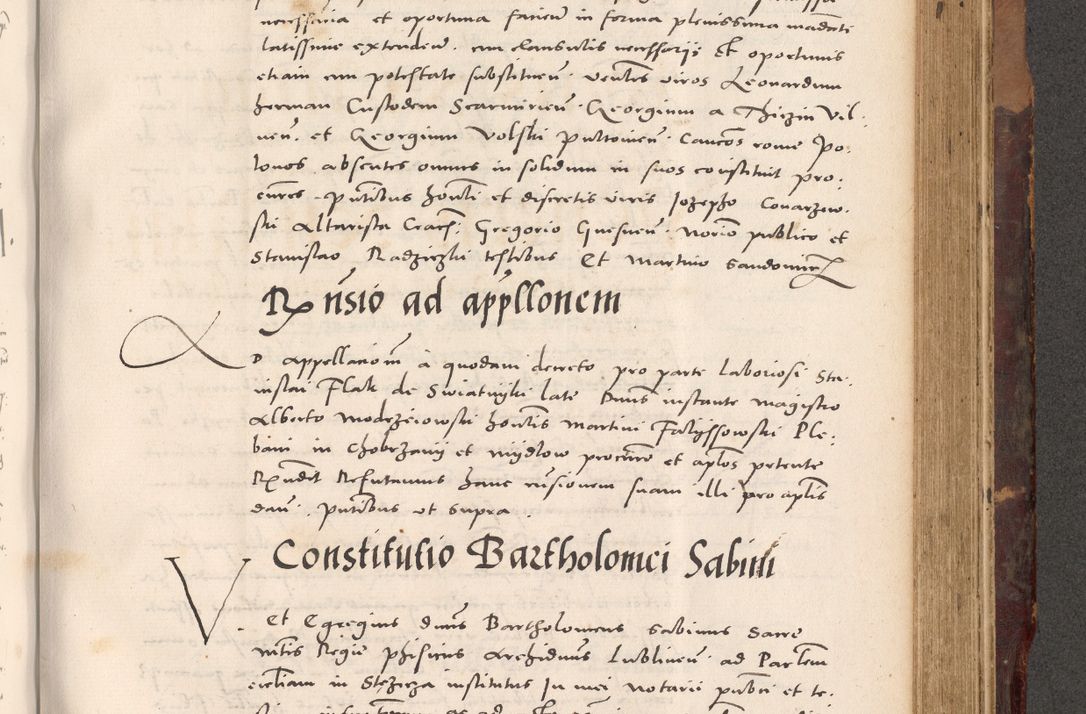 necessaria et oportuna facien in forma plenissima mandati
latissime extenden. cum clausulis necessarijs Et oportunis
etiam cum potestate substituen. venles viros Leonardum
herman Custodem Scarmirien. Georgium a Thiczin Vil.
nen. et Georgium Volski pultovien. Cancos rome Po.
lonos absentes omnes in solidum in suos constituit pro.
cures. pntibus honli et discretis viris Jozepho Conarzew.
ski Altarista Crac. Gregorio Gnesnen. norio publico et
Stanislao Radziczki testibus Et Martino Sandomir
Rx nsio ad appllonem
D appellacionm a quodam decreto pro parte Laboriosi Sta.
nislai Flak de Swiatnyki late Dnus instante magistro
Alberto Modrzeiowski honlis Martini Falyssowski Ple.
bani in Chobrzany et myslow procure et aplos petente
Rxndit Refutamus hanc rnsionem suam illi pro aplis
dan. pntibus ut supra.
Constitutio Bartholomei Sabini
V. Et Egregius dnus Bartholomeus Sabinus Sacre
mtis Regie phisicus Archidnus Lublinen. ad Parlem
eccliam in Stezicza institutus In mei notarii publi et te.